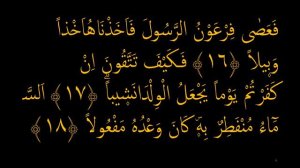 فَعَصٰى فِرْعَوْنُ الرَّسُولَ فَاَخَذْنَاهُ اَخْذاً
وَبِيلاً ﴿١٦﴾ فَكَيْفَ تَتَّقُونَ اِنْ
كَفَرْتُمْ يَوْماً يَجْعَلُ الْوِلْدَانَ شِيباًۗ ﴿١٧﴾ اَلسَّ
مَٓاءُ مُنْفَطِرٌ بِهٖۜ كَانَ وَعْدُهُ مَفْعُولاً ﴿١٨﴾